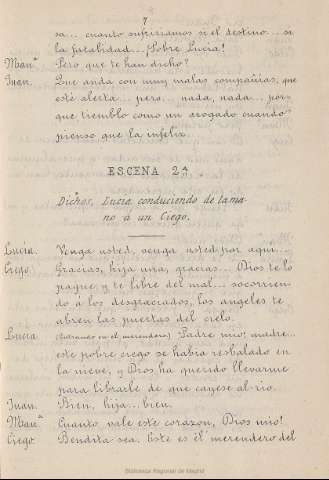 7
sa... cuanto sufririamos si el destino... si
la fatalidad... ¡Pobre Lucia!
Manª Pero que te han dicho?
Juan. Que anda con muy malas compañias, que
esté alerta... pero... nada, nada... por-
que tiemblo como un azogado cuando
pienso que la infeliz.
ESCENA 2ª.
Dichos, Lucia conduciendo de la ma-
no á un Ciego.
Lucia. Venga usted, venga usted por aqui...
Ciego. Gracias, hija mia, gracias... Dios te lo
pague y te libre del mal... socorrien-
do á los desgraciados, los angeles te
abren las puertas del cielo.
Lucia (Entrando en el merendero) Padre mio, madre...
este pobre ciego se habia resbalado en
la nieve, y Dios ha querido llevarme
para librarle de que cayese al rio.
Juan. Bien, hija... bien.
Manª Cuanto vale este corazon, Dios mio!
Ciego. Bendita sea. Este es el merendero del
Biblioteca Regional de Madrid